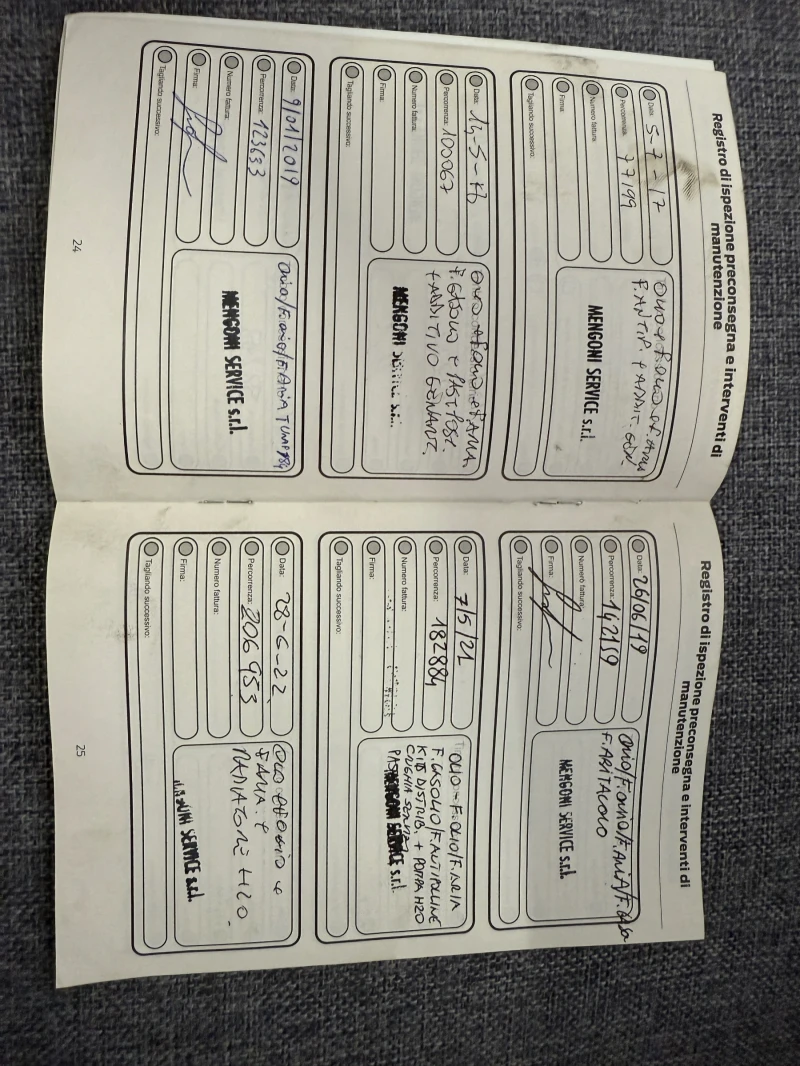 Registro di ispezione preconsegna e interventi di
manutenzione
Data: 5-7-17
Percorrenza: 77199
Numero fattura:
Firma:
Tagliando successivo:
OLIO + F.OLIO +F.ARIA
F.ANTIP. + ADDIT. GEN.
MENGONI SERVICE s.r.l.
Data: 14-5-18
Percorrenza: 100067
Numero fattura:
Firma:
Tagliando successivo:
OLIO +F.OLIO +F.ARIA
F.GASOLIO + PAST.POST.
+ ADDITIVO
MENGONI
Data: 9/01/2019
Percorrenza: 123633
Numero fattura:
Firma:
Tagliando successivo:
OLIO/F.OLIO/F.ARIA
MENGONI SERVICE s.r.l.
24
Registro di ispezione preconsegna e interventi di
manutenzione
Data: 26/06/19
Percorrenza: 142159
Numero fattura:
Firma:
Tagliando successivo:
OLIO/F.OLIO/F.ARIA/F.
F.ABITACOLO
MENGONI SERVICE s.r.l.
Data: 7/5/21
Percorrenza: 182884
Numero fattura:
Firma:
Tagliando successivo:
OLIO - F.OLIO/F.ARIA
F.GASOLIO/F.ANTIPOLLINE
KIT DISTRIB + POMPA H2O
CINGHIA SERVIZI
MENGONI SERVICE s.r.l.
Data: 28-6-22
Percorrenza: 206953
Numero fattura:
Firma:
Tagliando successivo:
OLIO +F.OLIO +
F.ARIA +
RADIATORE H2O.
MENGONI SERVICE s.r.l.
25